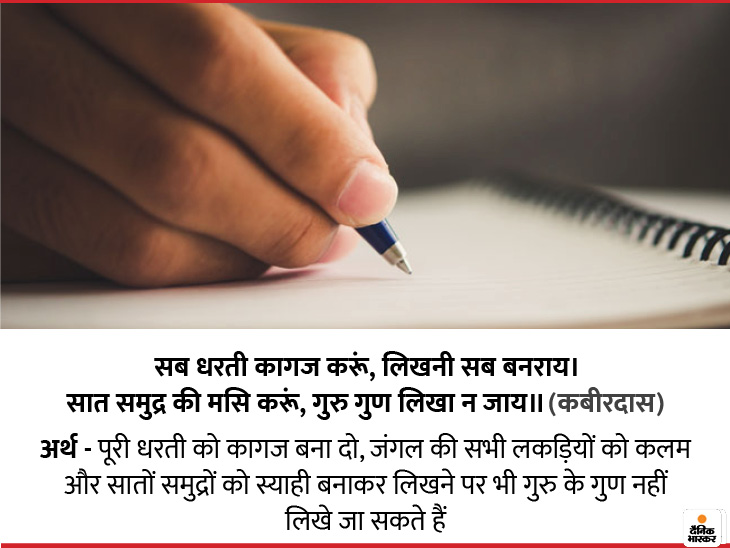 सब धरती कागज करूं, लिखनी सब बनराय।
सात समुद्र की मसि करूं, गुरु गुण लिखा न जाय॥ (कबीरदास)
अर्थ - पूरी धरती को कागज बना दो, जंगल की सभी लकड़ियों को कलम
और सातों समुद्रों को स्याही बनाकर लिखने पर भी गुरु के गुण नहीं
लिखे जा सकते हैं
दैनिक
भास्कर